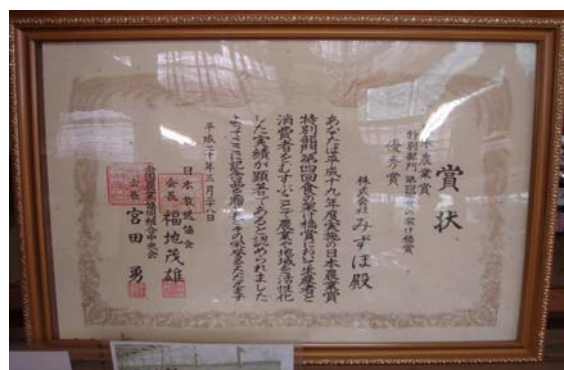 賞状
日本農業賞
特別部門 第四回食の架け橋賞
優秀賞
株式会社 みずほ殿
あなたは平成十九年度実施の日本農業賞
特別部門第四回食の架け橋賞において生産者と
消費者をむすぶことで農業や地域を活性化
した実績が顕著であると認められました
よってここに記念品を贈りその栄誉をたたえます
平成二十年三月二十八日
日本放送協会
会長 福地茂雄
全国農業協同組合中央会
会長 宮田勇